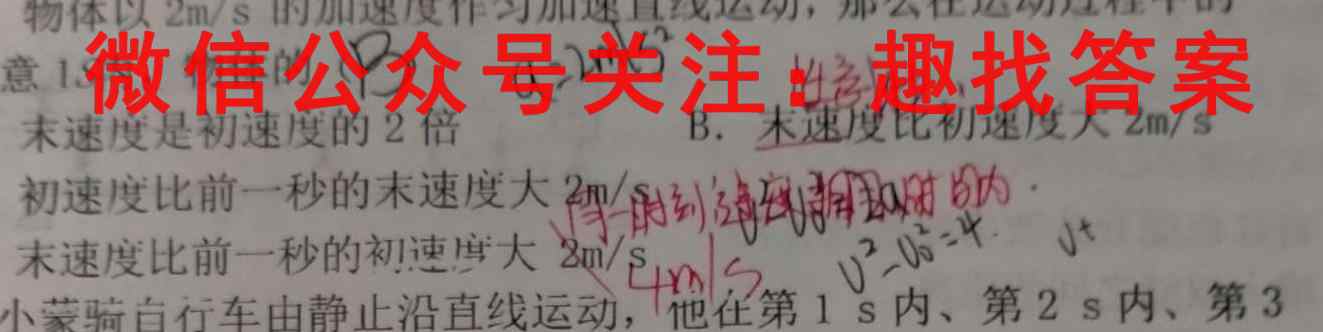 物体以 2m/s 的加速度作匀加速直线运动，那么在运动过程中的
意 1s
微信公众号关注：趣找答案
B a=2m/s²
末速度是初速度的 2 倍 B. 末速度比初速度大 2m/s
初速度比前一秒的末速度大 2m/s
同一时刻
末速度比前一秒的初速度大 2m/s
4m/s
小蒙骑自行车由静止沿直线运动，他在第 1 s 内、第 2 s 内、第 3